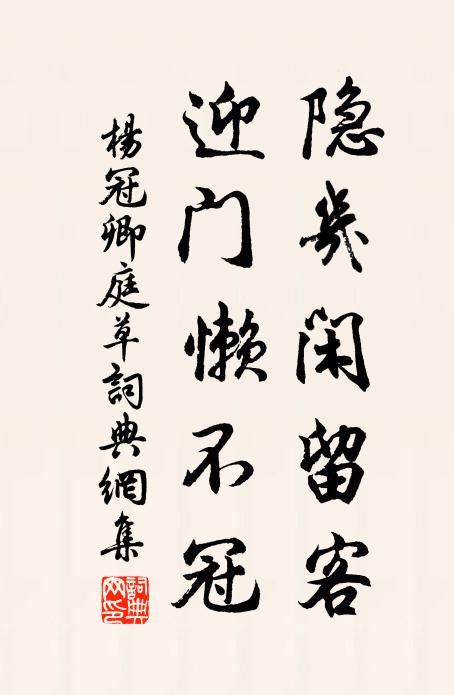 隐几闲留客
迎门懒不冠
楊冠卿庭草詞典網集
詞典网印